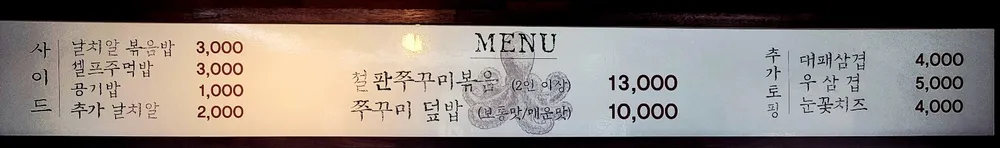 사이드
날치알 볶음밥 3,000
셀프주먹밥 3,000
공기밥 1,000
추가 날치알 2,000
MENU
철판쭈꾸미볶음 (2인 이상) 13,000
쭈꾸미 덮밥 (보통맛/매운맛) 10,000
추가토핑
대패삼겹 4,000
우삼겹 5,000
눈꽃치즈 4,000